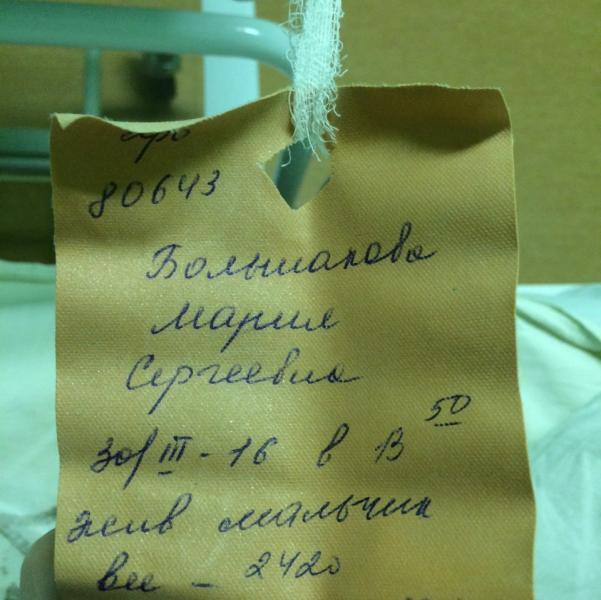 80643
Большакова
Мария
Сергеевна
30/III - 16 в 13 50
жив мальчик
вес - 2420